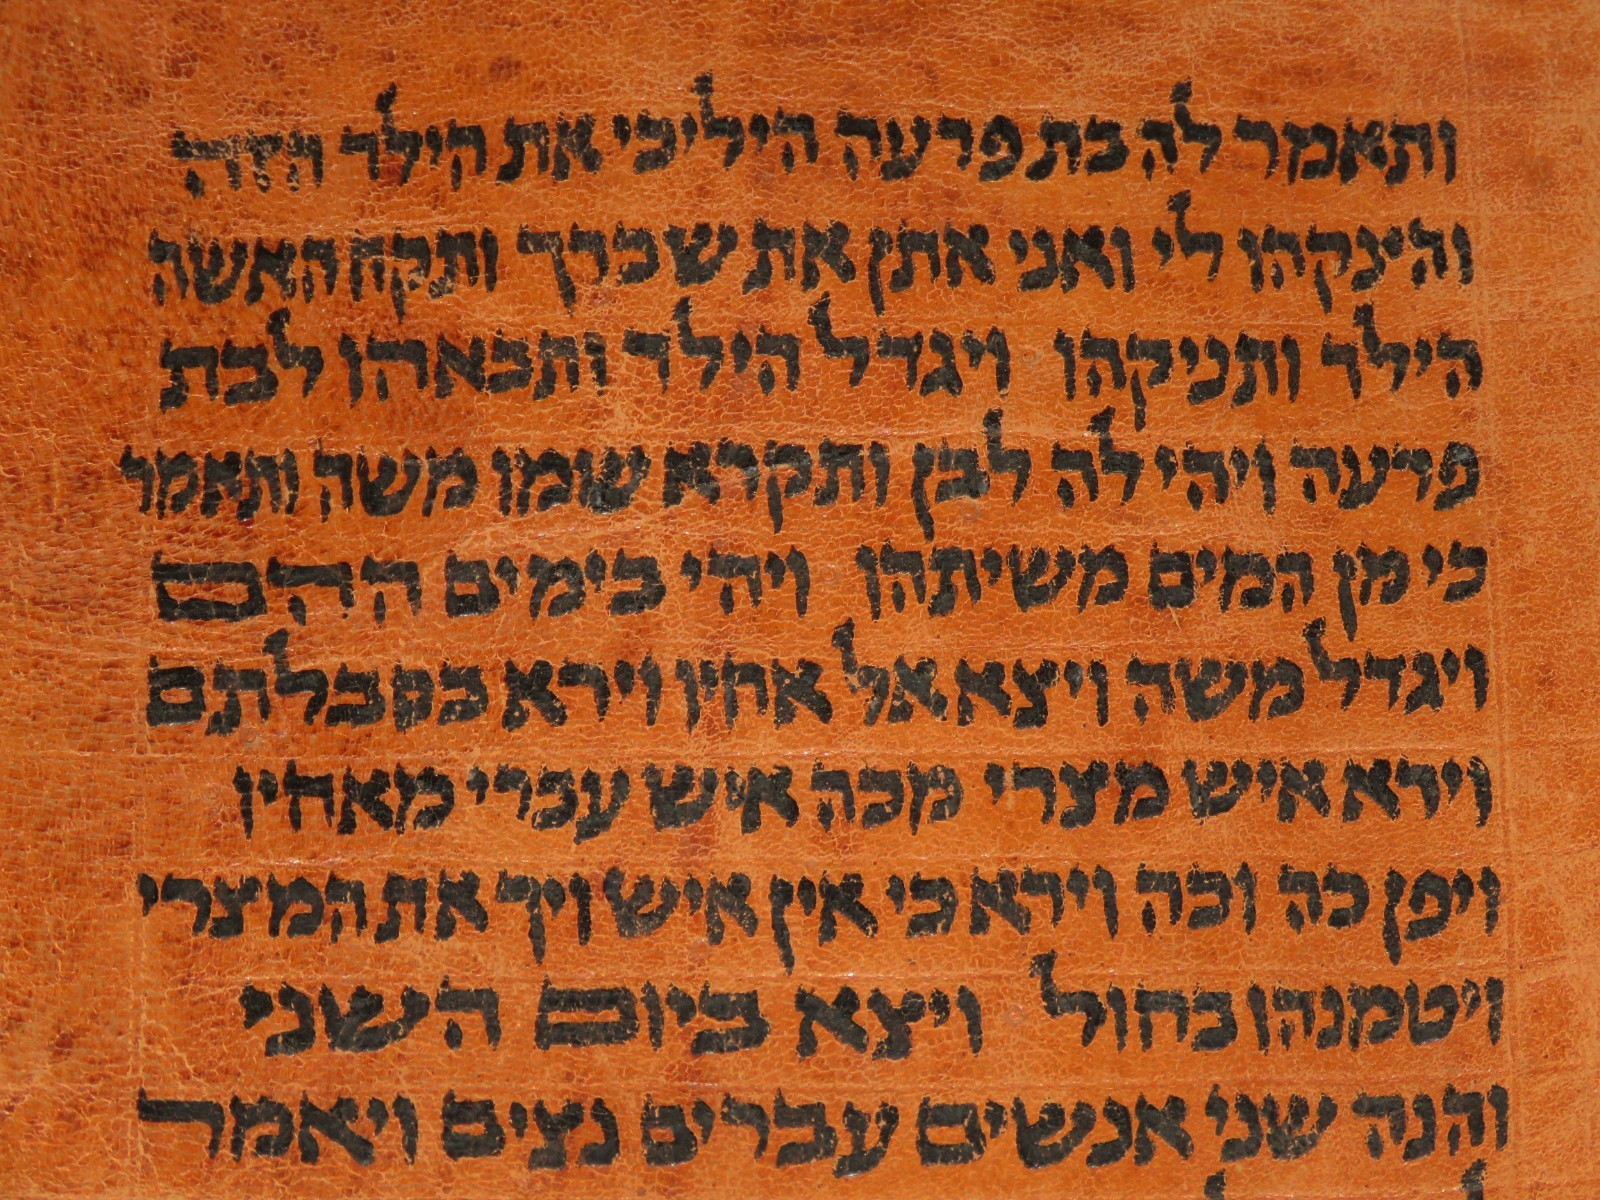 ותאמר לה בת פרעה היליכי את הילד הזה
והינקהו לי ואני אתן את שכרך ותקח האשה
הילד ותניקהו ויגדל הילד ותבאהו לבת
פרעה ויהי לה לבן ותקרא שמו משה ותאמר
כי מן המים משיתהו ויהי בימים ההם
ויגדל משה ויצא אל אחיו וירא בסבלתם
וירא איש מצרי מכה איש עברי מאחיו
ויפן כה וכה וירא כי אין איש ויך את המצרי
ויטמנהו בחול ויצא ביום השני
והנה שני אנשים עברים נצים ויאמר